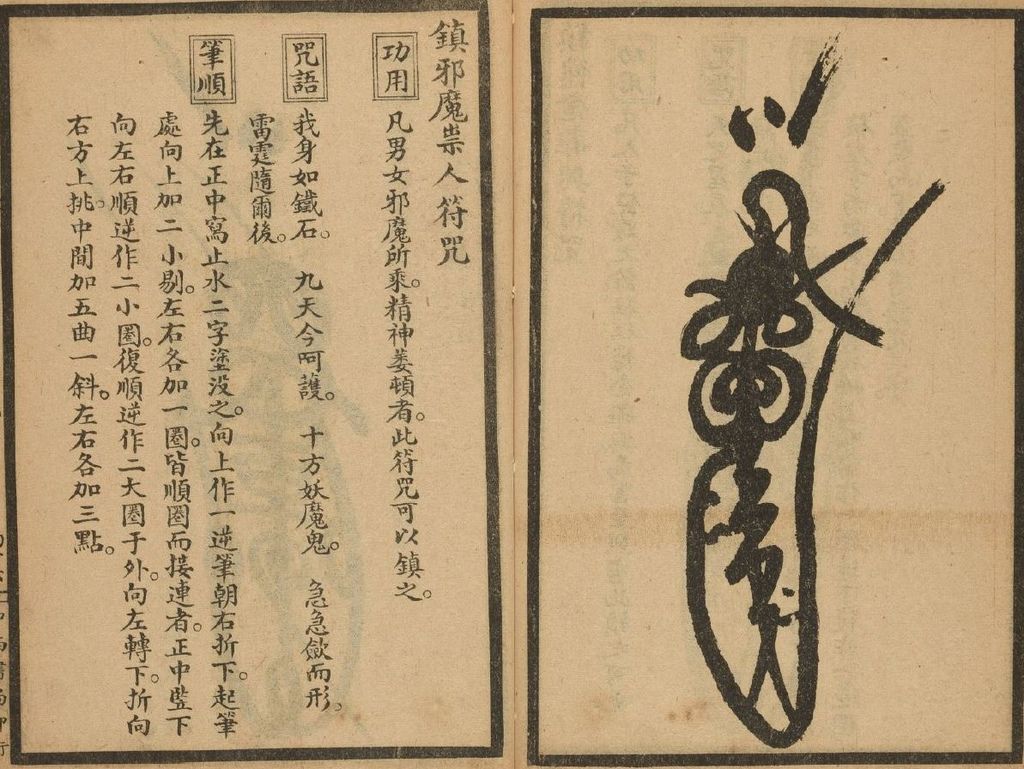 鎮邪魔祟人符咒
功用
凡男女邪魔所乘。精神萎頓者。此符咒可以鎮之。
咒語
我身如鐵石。 九天今呵護。 十方妖魔鬼。 急急斂而形。
雷霆隨爾後。
筆順
先在正中寫止水二字塗沒之。向上作一逆筆朝右折下。起筆
處向上加二小剔。左右各加一圈。皆順圈而接連者。正中豎下
向左右順逆作二小圈。復順逆作二大圈于外。向左轉下。折向
右方上挑。中間加五曲一斜。左右各加三點。